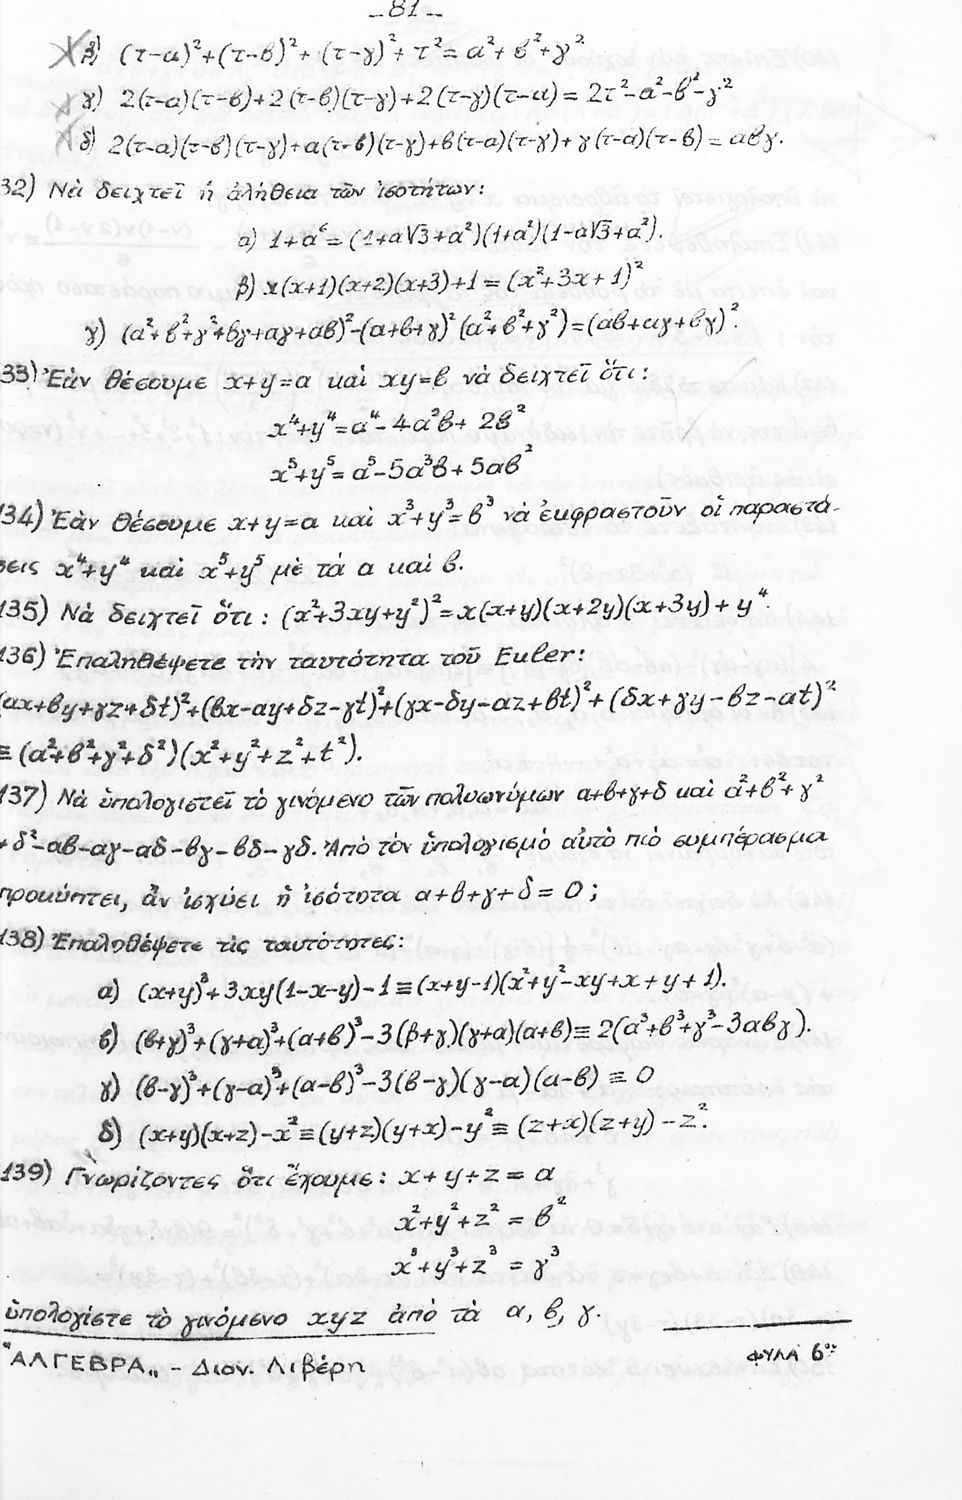 -81-
β) (τ-α)²+(τ-β)²+(τ-γ)²+τ²=α²+β²+γ²
γ) 2(τ-α)(τ-β)+2(τ-β)(τ-γ)+2(τ-γ)(τ-α)=2τ²-α²-β²-γ²
δ) 2(τ-α)(τ-β)(τ-γ)+α(τ-β)(τ-γ)+β(τ-α)(τ-γ)+γ(τ-α)(τ-β)=αβγ.
32) Νὰ δειχτεῖ ἡ ἀλήθεια τῶν ἰσοτήτων:
α) 1+α⁶=(1+α√3+α²)(1+α²)(1-α√3+α²).
β) x(x+1)(x+2)(x+3)+1=(x²+3x+1)²
γ) (α²+β²+γ²+βγ+αγ+αβ)²-(α+β+γ)²(α²+β²+γ²)=(αβ+αγ+βγ)².
33) Ἐὰν θέσουμε x+y=α καὶ xy=β νὰ δειχτεῖ ὅτι:
x⁴+y⁴=α⁴-4α²β+2β²
x⁵+y⁵=α⁵-5α³β+5αβ²
134) Ἐὰν θέσουμε x+y=α καὶ x³+y³=β³ νὰ ἐκφραστοῦν οἱ παραστά-
σεις x⁴+y⁴ καὶ x⁵+y⁵ μὲ τά α καὶ β.
135) Νὰ δειχτεῖ ὅτι: (x²+3xy+y²)²=x(x+y)(x+2y)(x+3y)+y⁴.
136) Ἐπαληθέψετε τὴν ταυτότητα τοῦ Euler:
(αx+βy+γz+δt)²+(βx-αy+δz-γt)²+(γx-δy-αz+βt)²+(δx+γy-βz-αt)²
≡(α²+β²+γ²+δ²)(x²+y²+z²+t²).
137) Νὰ ὑπολογιστεῖ τὸ γινόμενο τῶν πολυωνύμων α+β+γ+δ καὶ α²+β²+γ²
+δ²-αβ-αγ-αδ-βγ-βδ-γδ. Ἀπὸ τὸν ὑπολογισμὸ αὐτὸ πιὸ συμπέρασμα
προκύπτει, ἂν ἰσχύει ἡ ἰσότητα α+β+γ+δ=0;
138) Ἐπαληθέψετε τὶς ταυτότητες:
α) (x+y)³+3xy(1-x-y)-1≡(x+y-1)(x²+y²-xy+x+y+1).
β) (β+γ)³+(γ+α)³+(α+β)³-3(β+γ)(γ+α)(α+β)≡2(α³+β³+γ³-3αβγ).
γ) (β-γ)³+(γ-α)³+(α-β)³-3(β-γ)(γ-α)(α-β)≡0
δ) (x+y)(x+z)-x²≡(y+z)(y+x)-y²≡(z+x)(z+y)-z².
139) Γνωρίζοντες ὅτι ἔχουμε: x+y+z=α
x²+y²+z²=β²
x³+y³+z³=γ³
ὑπολογίστε τὸ γινόμενο xyz ἀπὸ τὰ α, β, γ.
"ΑΛΓΕΒΡΑ„ - Διον. Λιβέρη ΦΥΛΛ 6ᵒⁿ